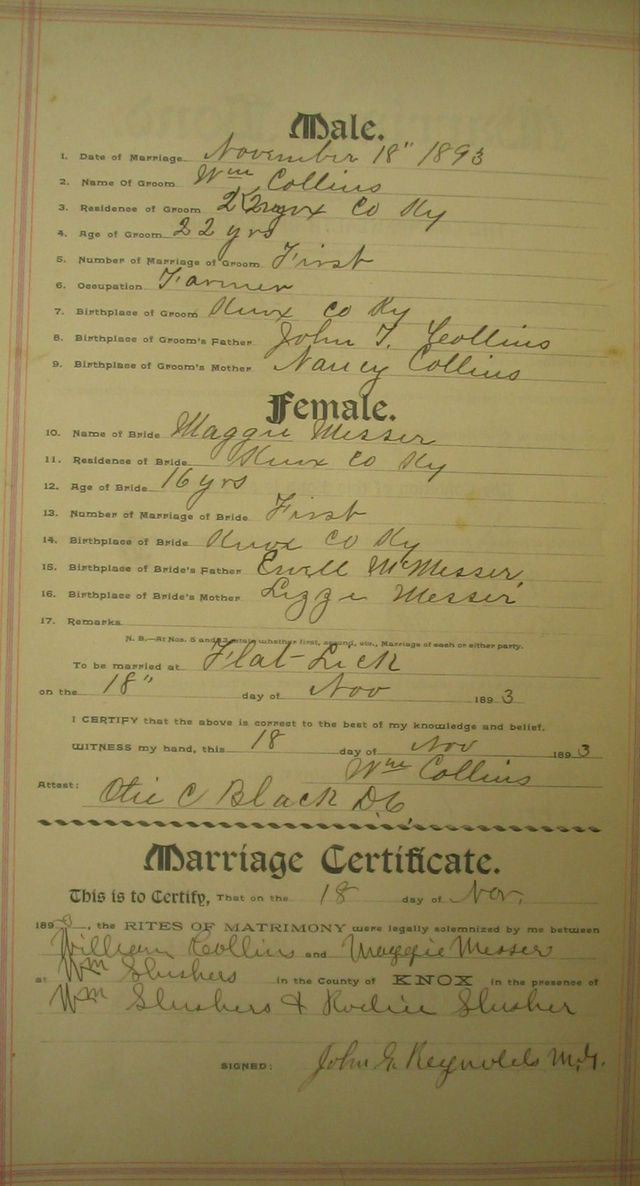 Male.
1. Date of Marriage November 18" 1893
2. Name Of Groom Wm Collins
3. Residence of Groom Knox Co Ky
4. Age of Groom 22 yrs
5. Number of Marriage of Groom First
6. Occupation Farmer
7. Birthplace of Groom Knox Co Ky
8. Birthplace of Groom's Father John T. Collins
9. Birthplace of Groom's Mother Nancy Collins
Female.
10. Name of Bride Maggie Messer
11. Residence of Bride Knox Co Ky
12. Age of Bride 16 yrs
13. Number of Marriage of Bride First
14. Birthplace of Bride Knox Co Ky
15. Birthplace of Bride's Father Ewell Mc Messer
16. Birthplace of Bride's Mother Lizzie Messer
17. Remarks
N. B.—At Nos. 5 and 13 state whether first, second, etc., Marriage of each or either party.
To be married at Flat-Lick
on the 18" day of Nov 1893
I CERTIFY that the above is correct to the best of my knowledge and belief.
WITNESS my hand, this 18 day of Nov 1893
Wm Collins
Attest: Otie C Black D.C.
Marriage Certificate.
This is to Certify, That on the 18 day of Nov.
1893, the RITES OF MATRIMONY were legally solemnized by me between
William Collins and Maggie Messer
at Wm Slushers in the County of KNOX in the presence of
Wm Slushers & Slusher
SIGNED: John G Reynolds M.G.